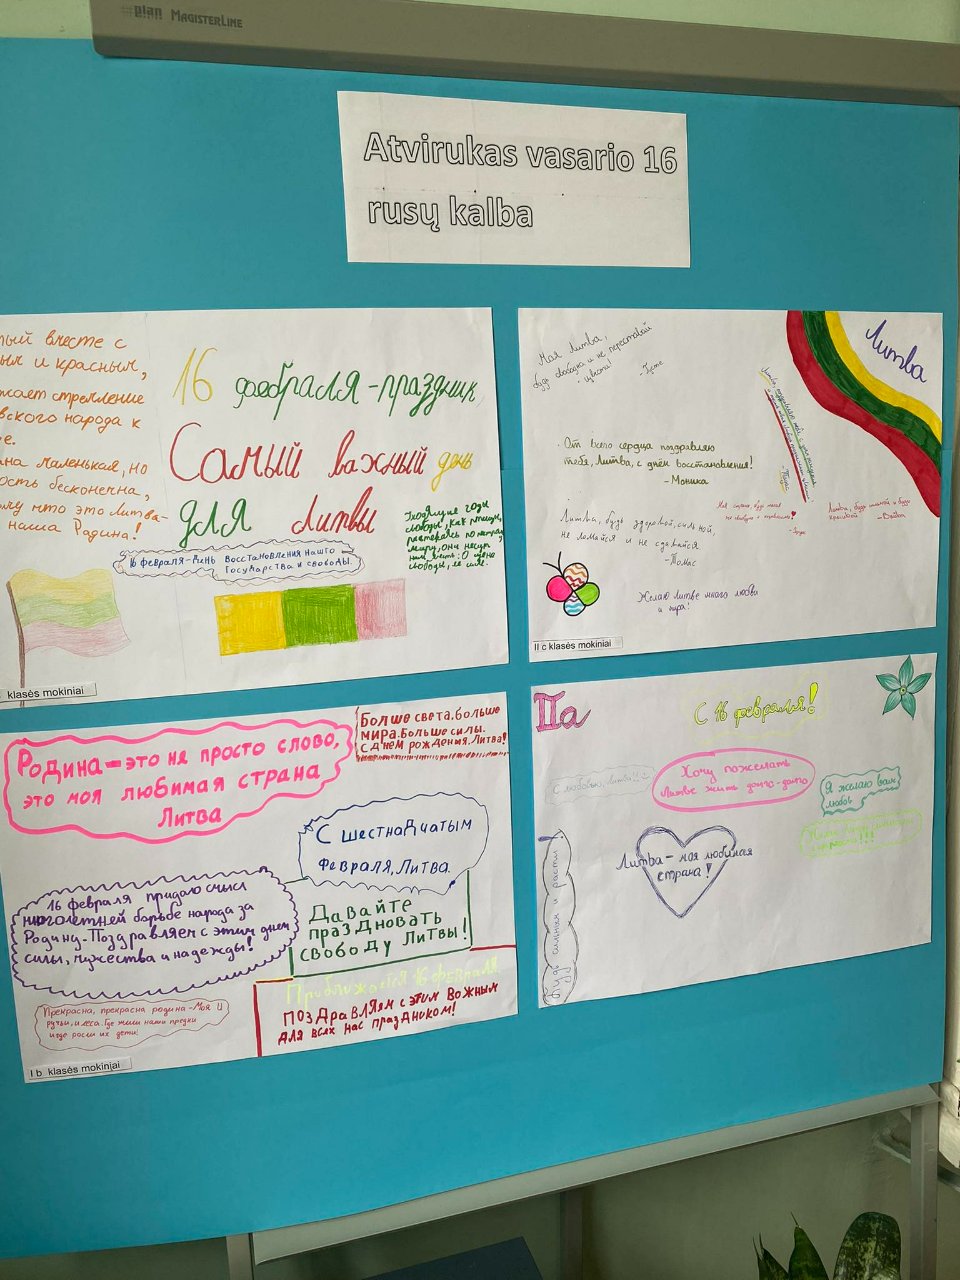 plan MAGISTERLINE
Atvirukas vasario 16
rusų kalba
вместе с
и красным,
стремление
народа к
маленькая, но
бесконечна,
что это Литва-
наша Родина!
16 февраля-праздник
Самый важный день
для Литвы
16 февраля-День восстановления нашго
Государства и свободы.
свободы, как птицы,
klasės mokiniai
Литва
Моя Литва,
будь свободна и не переставай
цвести!
От всего сердца поздравляю
тебя, Литва, с днём восстановления!
-Моника
Литва, будь здоровой, сильной,
не ломайся и не сдавайся
-Томас
Литва, будь сильной и будь
красивой
Желаю Литве много любви
и мира!
II c klasės mokiniai
Родина-это не просто слово,
это моя любимая страна
Литва
Больше света, больше
мира. Больше силы.
С днём рождения, Литва!
С шестнадцатым
Февраля, Литва.
16 февраля придало смысл
многолетней борьбе народа за
Родину. Поздравляем с этим днём
силы, мужества и надежды!
Давайте
праздновать
свободу Литвы!
Приближается 16 февраля.
Поздравляем с этим важным
для всех нас праздником!
Прекрасна, прекрасна родина-Моя И
ручьи, и леса. Где жили наши предки
и где росли их дети!
I b klasės mokiniai
IIa
С 16 февраля!
С любовью, Литва!!
Хочу пожелать
Литве жить долго-долго
Я желаю вам
любовь
Литва- моя любимая
страна!
Будь сильной и расти